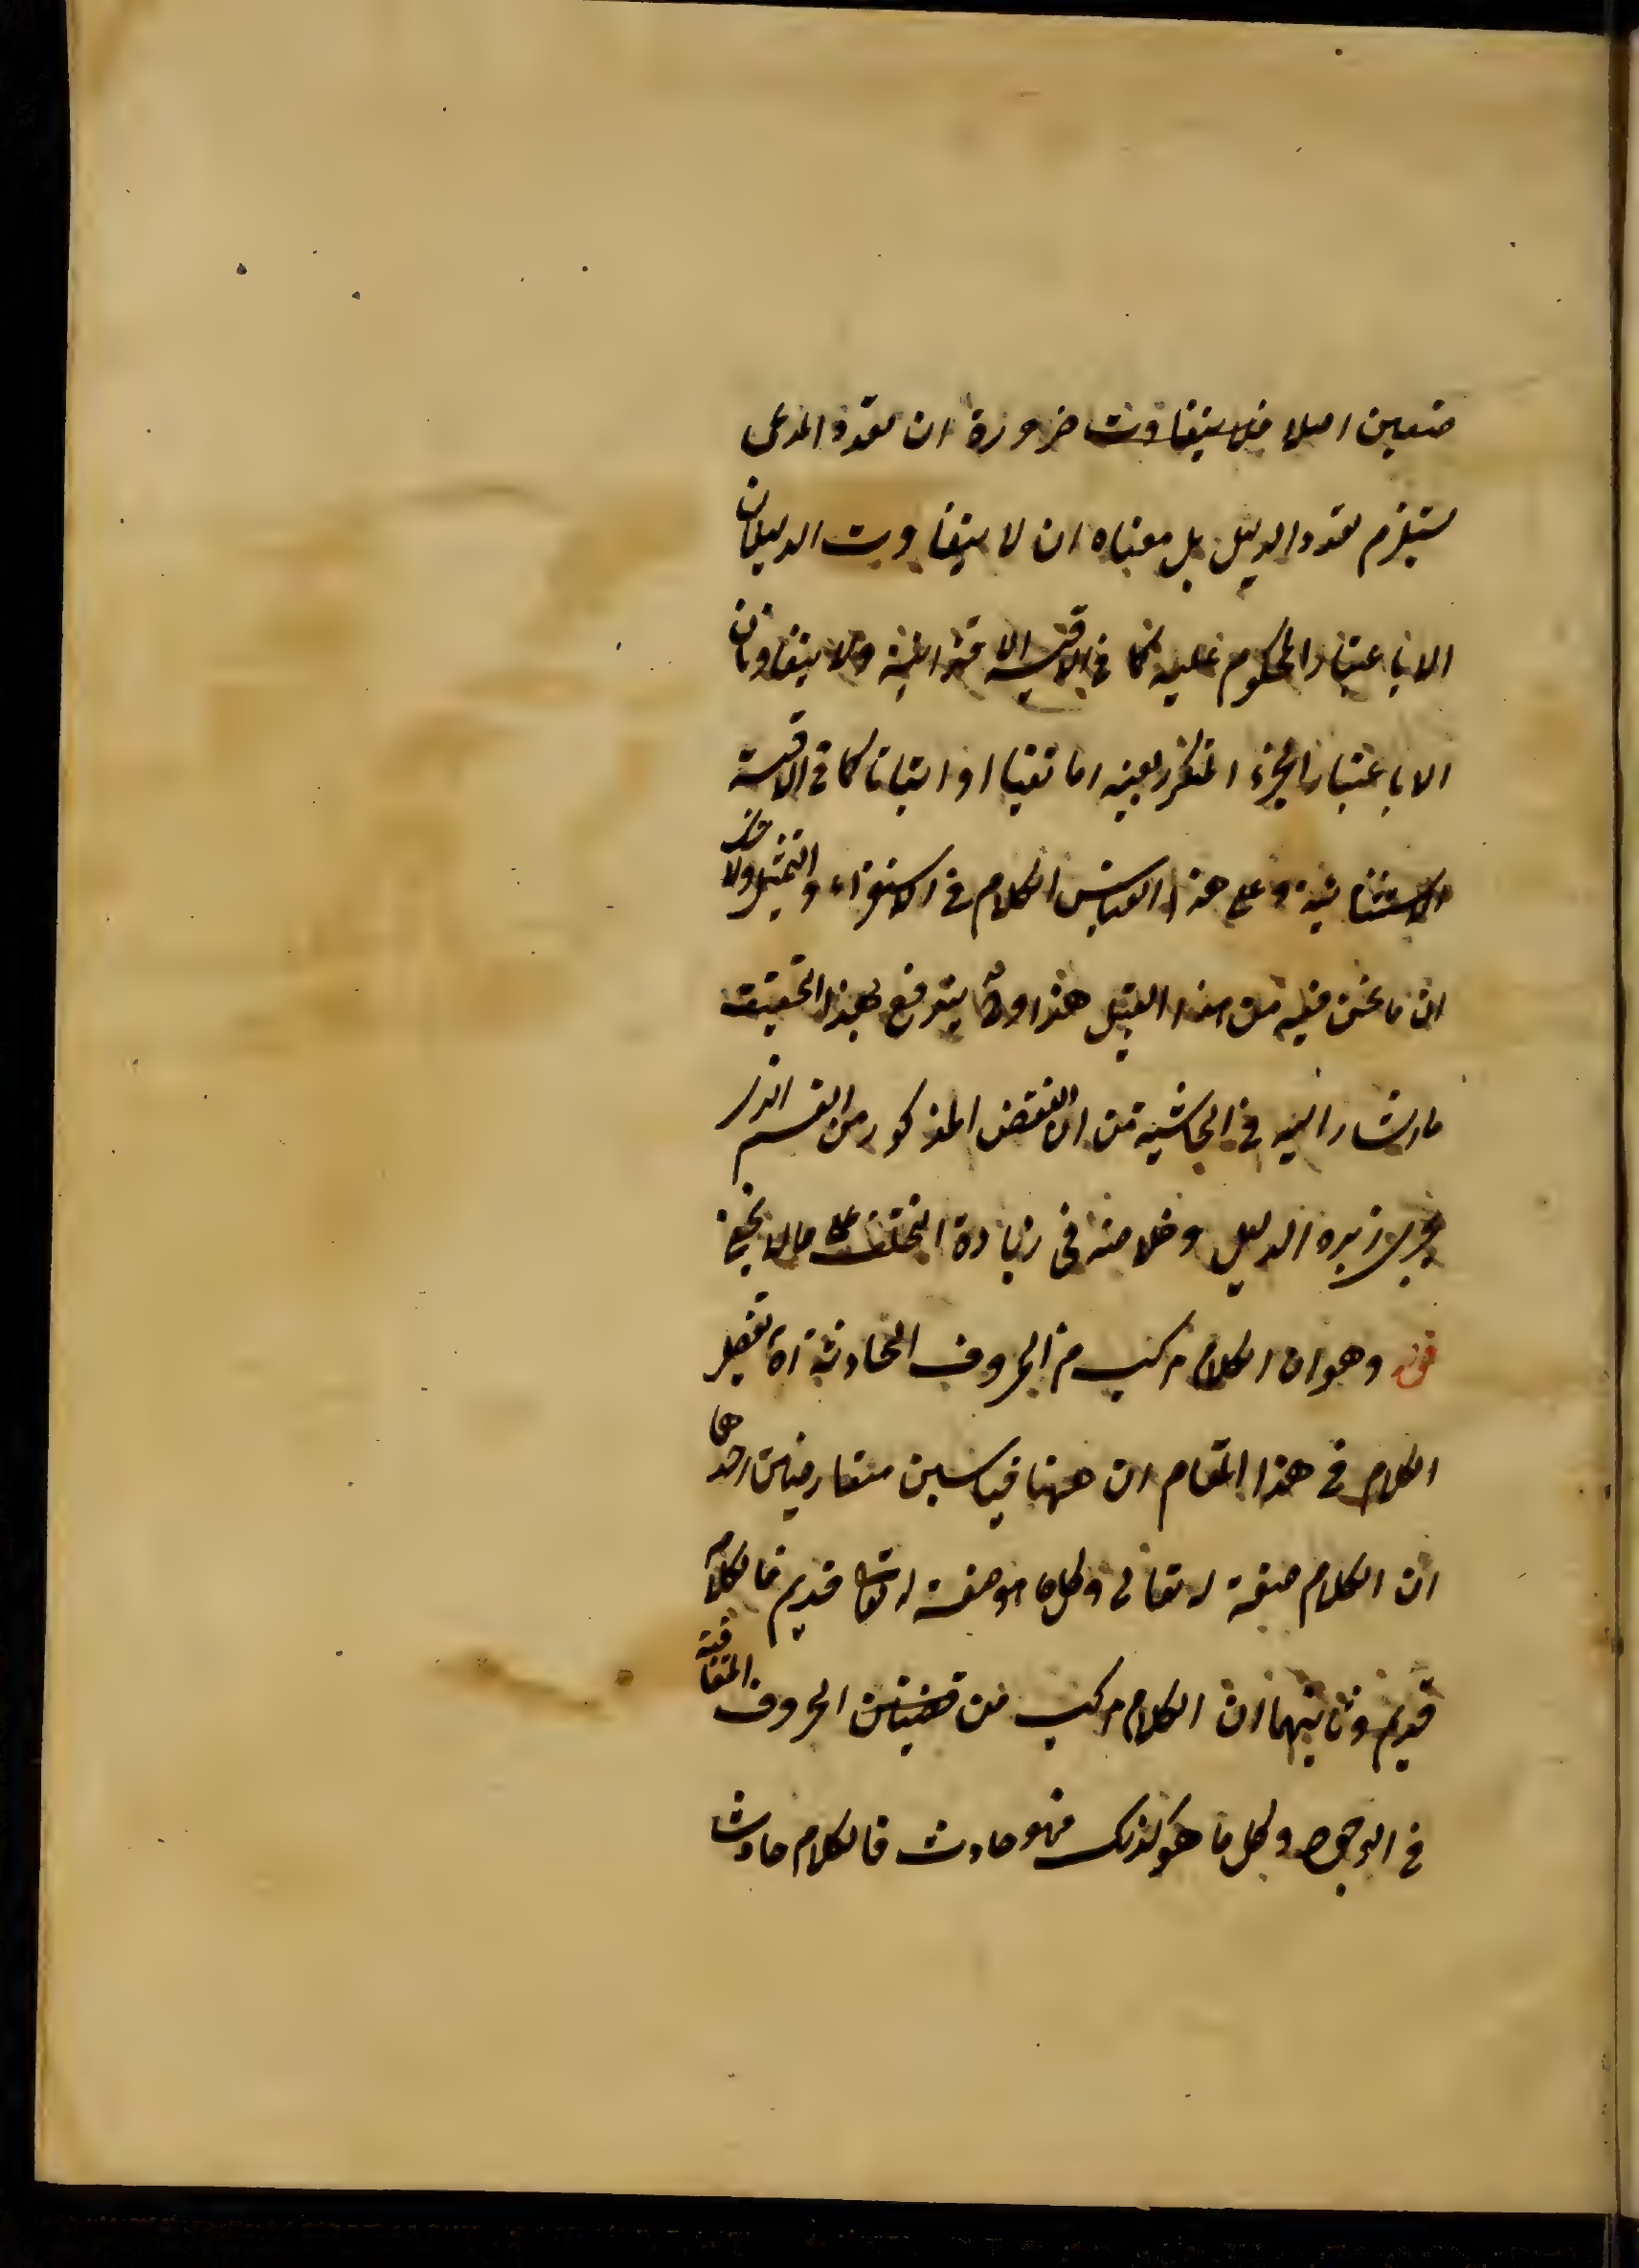 متعين اصلا فلا يتفاوت ضرورة ان تعدد المدعى
يستلزم تعدد الدليل بل معناه ان لا يتفاوت الدليلان
الا باعتبار المحكوم عليه كما في الاقيسة الاقترانية ولا يتفاوتان
الا باعتبار الجزء المتكرر بعينه اما نفيا او اثباتا كما في الاقيسة
الاستثنائية وعلى هذا القياس الكلام في الاستقراء والتمثيل ولا خفاء
ان ما نحن فيه من هذا القبيل هذا وانه يندفع بهذا التحقيق
ما اشار اليه في الحاشية من ان النقض المذكور من القسم الذي
يجري زبدة الدليل وخلاصته في زيادة التخلف على ما لا يخفى
قوله وهو ان الكلام مركب من الحروف الحادثة اه تفصيل
الكلام في هذا المقام ان ههنا قياسين متعارضين احدهما
ان الكلام صفة له تعالى وكل ما هو صفة له تعالى قديم فالكلام
قديم وثانيهما ان الكلام مركب من الحروف المتعاقبة
في الوجود وكل ما هو كذلك فهو حادث فالكلام حادث